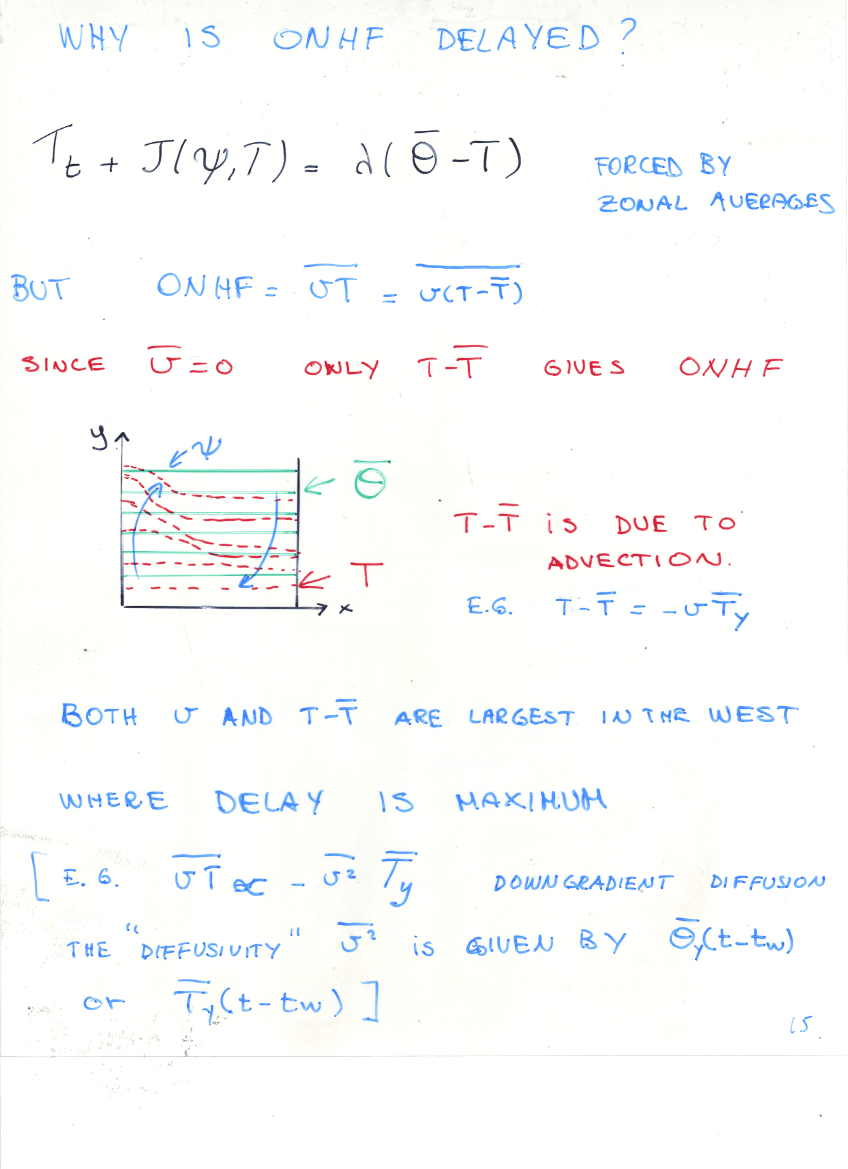 WHY IS ONHF DELAYED?
T_t + J(ψ,T) = λ(Θ̅ - T) FORCED BY
ZONAL AVERAGES
BUT ONHF = \overline{υT} = \overline{υ(T-T̅)}
SINCE υ̅=0 ONLY T-T̅ GIVES ONHF
y ψ
Θ̅
T
x
T-T̅ iS DUE TO
ADVECTION.
E.G. T-T̅ = -υT̅_y
BOTH υ AND T-T̅ ARE LARGEST IN THE WEST
WHERE DELAY IS MAXIMUM
[E.G. \overline{υT} ∝ - \overline{υ²} T̅_y DOWNGRADIENT DIFFUSION
THE "DIFFUSIVITY" \overline{υ²} is GIVEN BY Θ̅_y(t-tw)
or T̅_y(t-tw)]
15